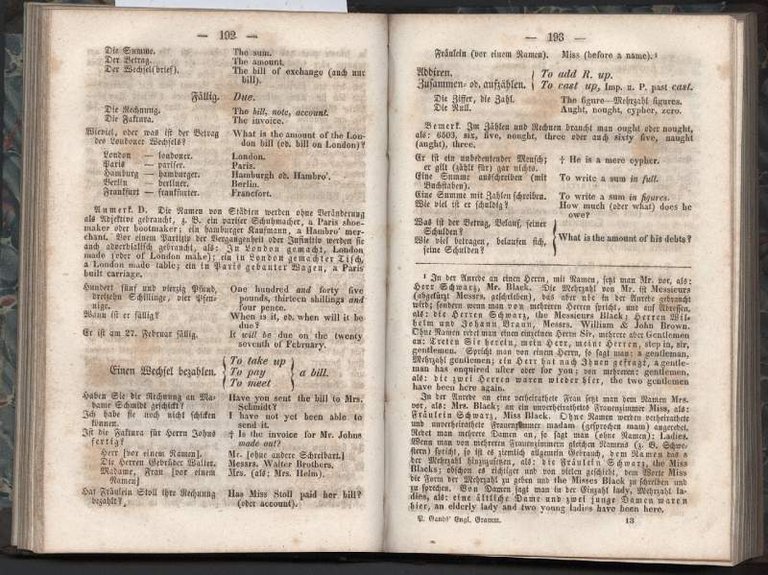 — 192 —
Die Summe. The sum.
Der Betrag. The amount.
Der Wechsel(brief). The bill of exchange (auch nur
bill).
Fällig. Due.
Die Rechnung. The bill, note, account.
Die Faktura. The invoice.
Wieviel, oder was ist der Betrag What is the amount of the Lon-
des Londoner Wechsels? don bill (od. bill on London)?
London — londoner. London.
Paris — pariser. Paris.
Hamburg — hamburger. Hamburgh od. Hambro'.
Berlin — berliner. Berlin.
Frankfurt — frankfurter. Francfort.
Anmerk. D. Die Namen von Städten werden ohne Veränderung
als Adjektive gebraucht, z. B. ein pariser Schuhmacher, a Paris shoe-
maker oder bootmaker; ein hamburger Kaufmann, a Hambro' mer-
chant. Vor einem Partizip der Vergangenheit oder Infinitiv werden sie
auch adverbialisch gebraucht, als: In London gemacht, London
made (oder of London make); ein in London gemachter Tisch,
a London made table; ein in Paris gebauter Wagen, a Paris
built carriage.
Hundert fünf und vierzig Pfund, One hundred and forty five
dreizehn Schillinge, vier Pfen- pounds, thirteen shillings and
nige. four pence.
Wann ist er fällig? When is it, od. when will it be
due?
Er ist am 27. Februar fällig. It will be due on the twenty
seventh of February.
Einen Wechsel bezahlen. To take up
To pay a bill.
To meet
Haben Sie die Rechnung an Ma- Have you sent the bill to Mrs.
dame Schmidt geschickt? Schmidt?
Ich habe sie noch nicht schicken I have not yet been able to
können. send it.
Ist die Faktura für Herrn Johns † Is the invoice for Mr. Johns
fertig? made out?
Herr [vor einem Namen]. Mr. [ohne andere Schreibart.]
Die Herren Gebrüder Walter. Messrs. Walter Brothers.
Madame, Frau [vor einem Mrs. (als: Mrs. Helm).
Namen]
Hat Fräulein Stoll ihre Rechnung Has Miss Stoll paid her bill?
bezahlt? (oder account).
— 193 —
Fräulein (vor einem Namen). Miss (before a name).¹
Addiren. To add R. up.
Zusammen- od. aufzählen. To cast up, Imp. u. P. past cast.
Die Ziffer, die Zahl. The figure—Mehrzahl figures.
Die Null. Aught, nought, cypher, zero.
Bemerk. Im Zählen und Rechnen braucht man ought oder nought,
als: 6503, six, five, nought, three oder auch sixty five, naught
(aught), three.
Er ist ein unbedeutender Mensch; † He is a mere cypher.
er gilt (zählt für) gar nichts.
Eine Summe ausschreiben (mit To write a sum in full.
Buchstaben).
Eine Summe mit Zahlen schreiben. To write a sum in figures.
Wie viel ist er schuldig? How much (oder what) does he
owe?
Was ist der Betrag, Belauf, seiner
Schulden?
Wie viel betragen, belaufen sich, What is the amount of his debts?
seine Schulden?
¹ In der Anrede an einen Herrn, mit Namen, setzt man Mr. vor, als:
Herr Schwarz, Mr. Black. Die Mehrzahl von Mr. ist Messieurs
(abgekürzt Messrs. geschrieben), das aber nie in der Anrede gebraucht
wird; sondern wenn man von mehreren Herren spricht, und auf Adressen,
als: die Herren Schwarz, the Messieurs Black; Herren Wil-
helm und Johann Braun, Messrs. William & John Brown.
Ohne Namen redet man einen einzelnen Herrn Sir, mehrere aber Gentlemen
an: Treten Sie herein, mein Herr, meine Herren, step in, sir,
gentlemen. Spricht man von einem Herrn, so sagt man: a gentleman,
Mehrzahl gentlemen; ein Herr hat nach Ihnen gefragt, a gentle-
man has enquired after oder for you; von mehreren: gentlemen,
als: die zwei Herren waren wieder hier, the two gentlemen
have been here again.
In der Anrede an eine verheirathete Frau setzt man dem Namen Mrs.
vor, als: Mrs. Black; an ein unverheirathetes Frauenzimmer Miss, als:
Fräulein Schwarz, Miss Black. Ohne Namen werden verheirathete
und unverheirathete Frauenzimmer madam (gesprochen mam) angeredet.
Redet man mehrere Damen an, so sagt man (ohne Namen): Ladies.
Wenn man von mehreren Frauenzimmern gleichen Namens (z. B. Schwe-
stern) spricht, so ist es ziemlich allgemein Gebrauch, dem Namen das s
der Mehrzahl hinzuzusetzen, als: die Fräulein Schwarz, the Miss
Blacks; obschon es richtiger und von vielen geschieht, dem Worte Miss
die Form der Mehrzahl zu geben und the Misses Black zu schreiben und
zu sprechen. Von Damen sagt man in der Einzahl lady, Mehrzahl la-
dies, als: eine ältliche Dame und zwei junge Damen waren
hier, an elderly lady and two young ladies have been here.
P. Gands' Engl. Gramm. 13